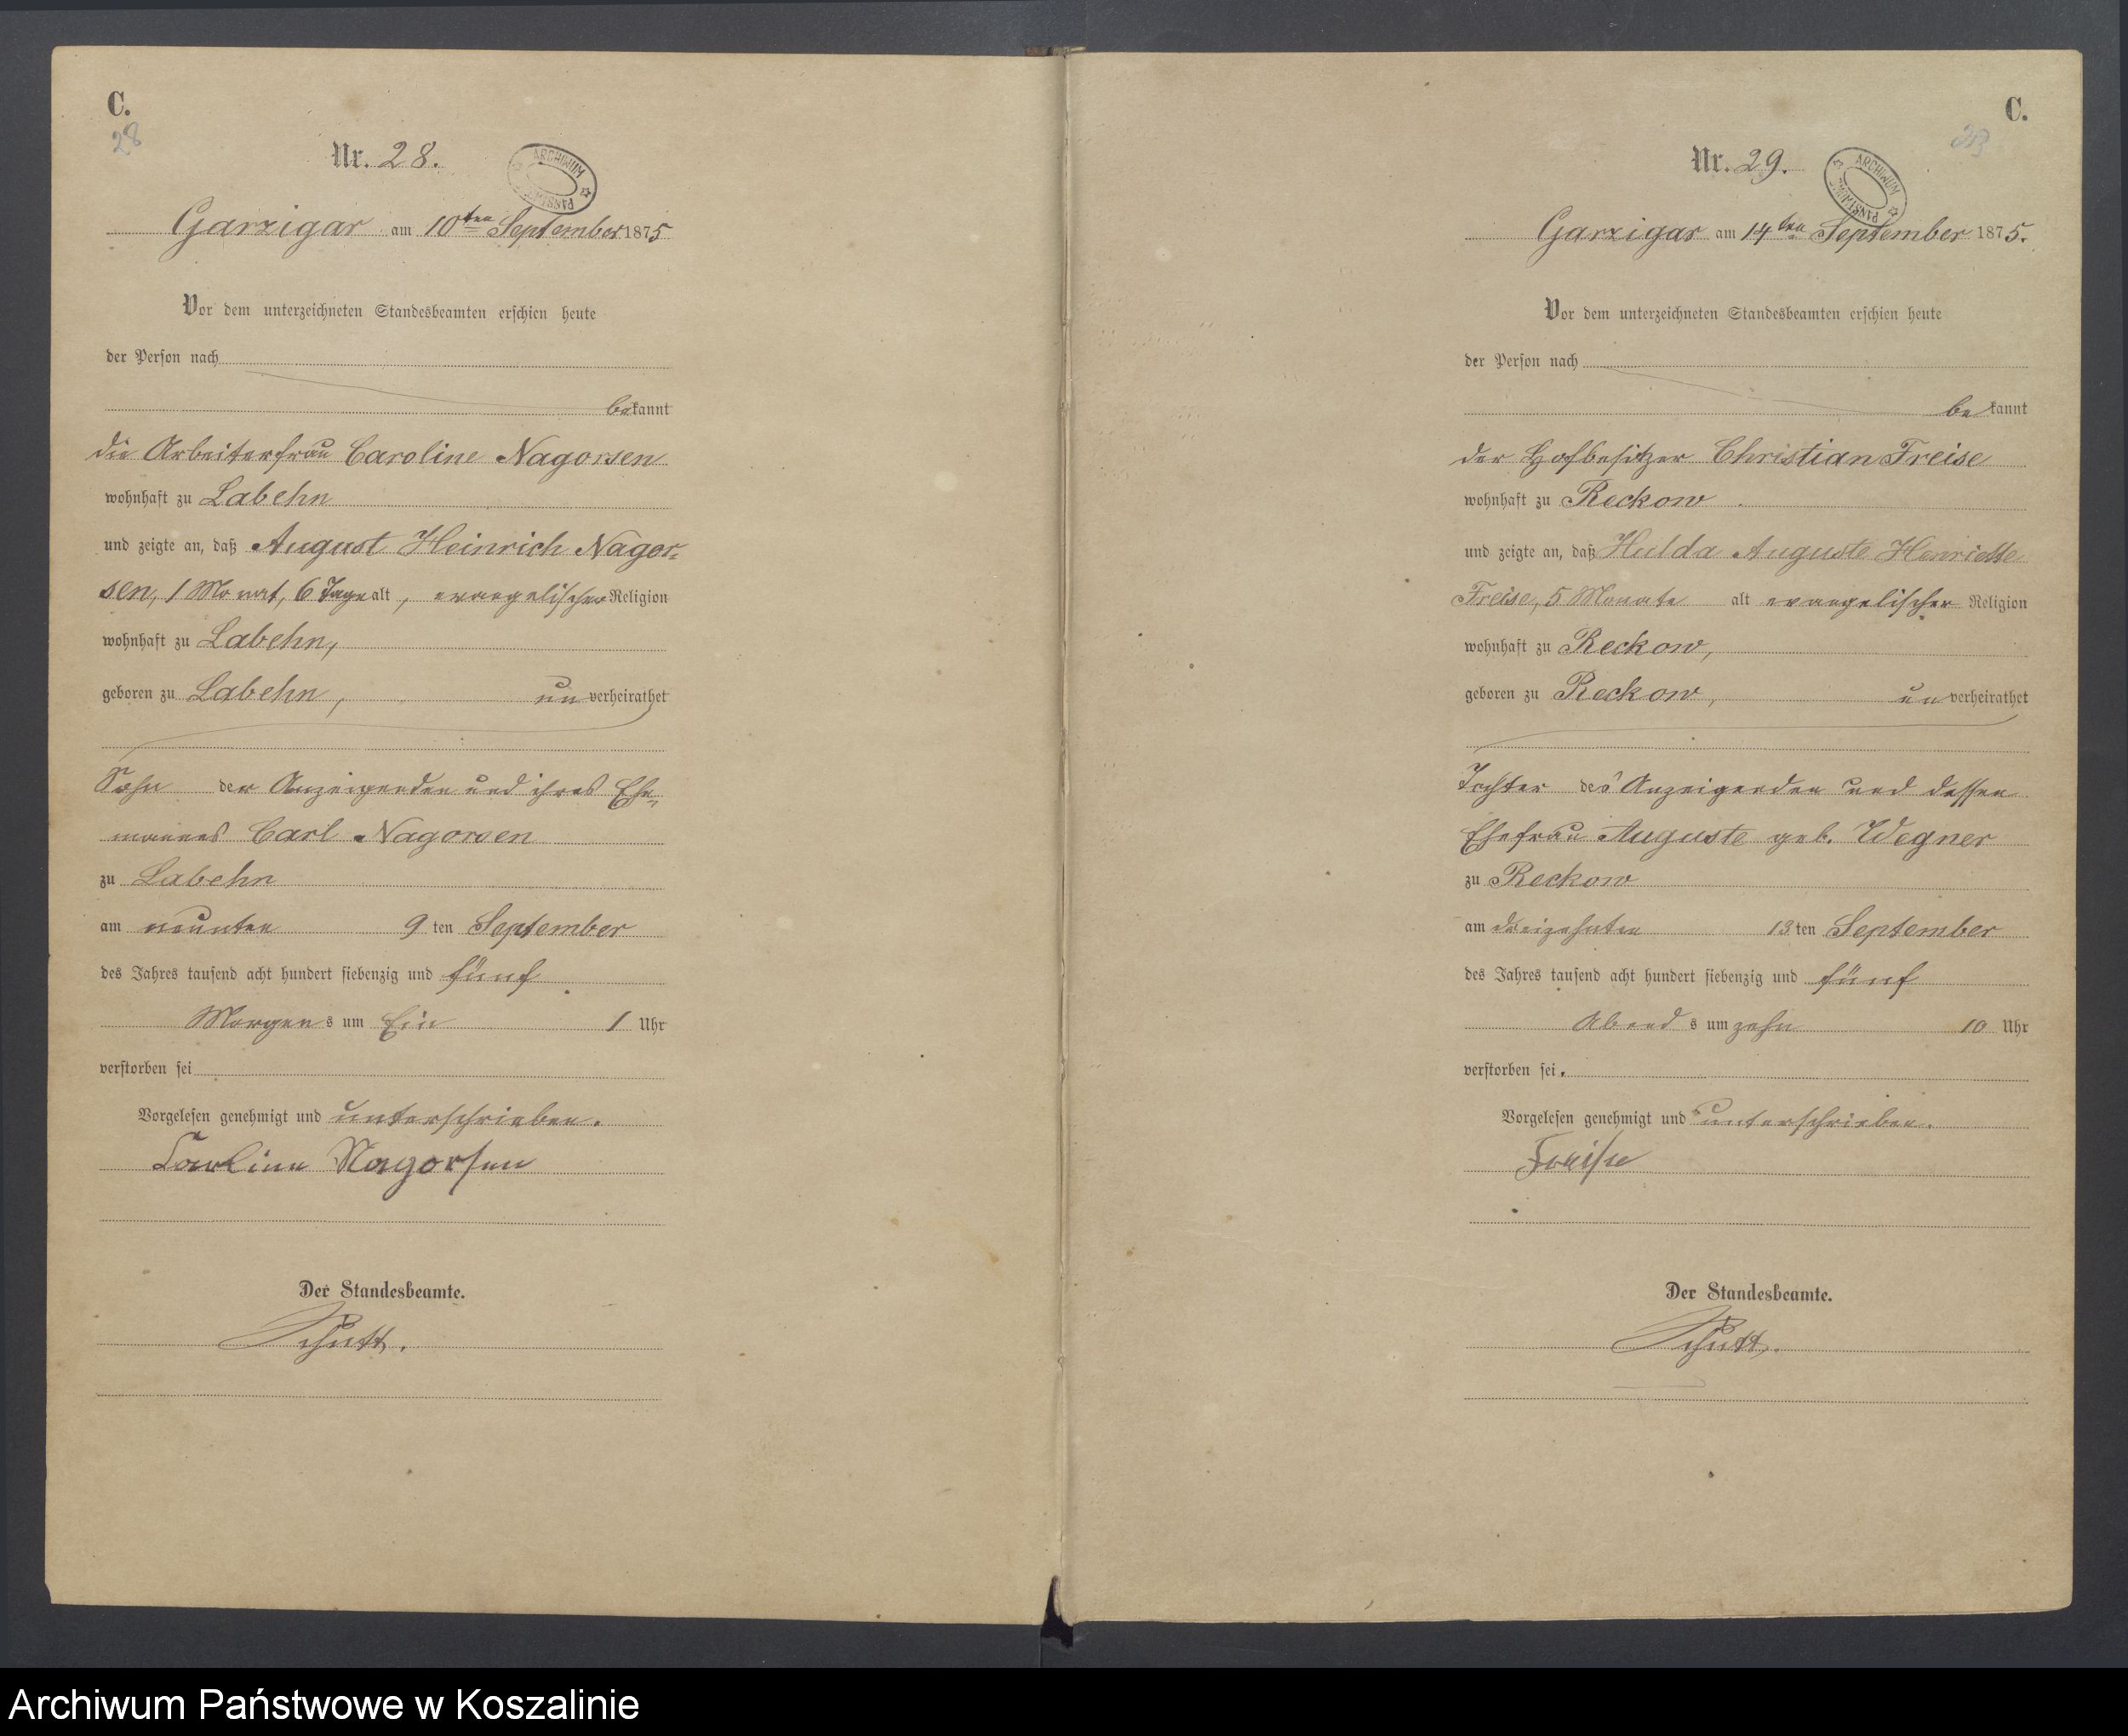 C.
28
Nr. 28.
ARCHIWUM
Garzigar am 10ten September 1875
Vor dem unterzeichneten Standesbeamten erschien heute
der Person nach
bekannt
die Arbeiterfrau Caroline Nagorsen
wohnhaft zu Labehn
und zeigte an, daß August Heinrich Nagor-
sen, 1 Monat, 6 Tage alt, evangelischer Religion
wohnhaft zu Labehn,
geboren zu Labehn, unverheirathet
Sohn der Anzeigenden und ihres Ehe-
mannes Carl Nagorsen
zu Labehn
am neunten 9 ten September
des Jahres tausend acht hundert siebenzig und fünf
Morgens um Ein 1 Uhr
verstorben sei
Vorgelesen genehmigt und unterschrieben.
Carline Nagorsen
Der Standesbeamte.
Schutt.
C.
Nr. 29.
ARCHIWUM
Garzigar am 14ten September 1875.
Vor dem unterzeichneten Standesbeamten erschien heute
der Person nach
bekannt
der Hofbesitzer Christian Freise
wohnhaft zu Reckow
und zeigte an, daß Hulda Auguste Henriette
Freise, 5 Monate alt evangelischer Religion
wohnhaft zu Reckow,
geboren zu Reckow, unverheirathet
Tochter des Anzeigenden und dessen
Ehefrau Auguste geb. Wegner
zu Reckow
am dreizehnten 13 ten September
des Jahres tausend acht hundert siebenzig und fünf
Abends um zehn 10 Uhr
verstorben sei.
Vorgelesen genehmigt und unterschrieben.
Freise
Der Standesbeamte.
Schutt.
Archiwum Państwowe w Koszalinie